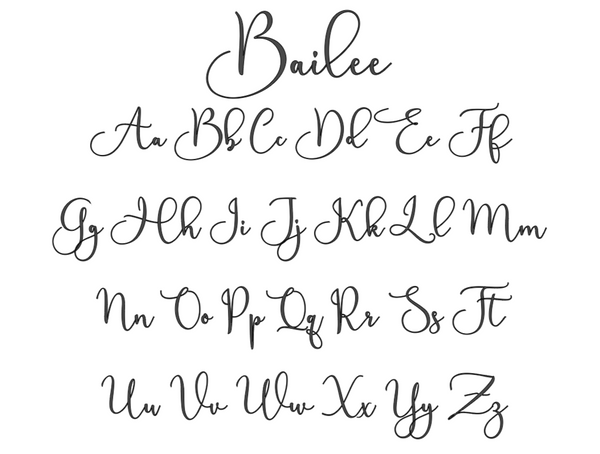 Bailee
Aa Bb Cc Dd Ee Ff
Gg Hh Ii Jj Kk Ll Mm
Nn Oo Pp Qq Rr Ss Tt
Uu Vv Ww Xx Yy Zz